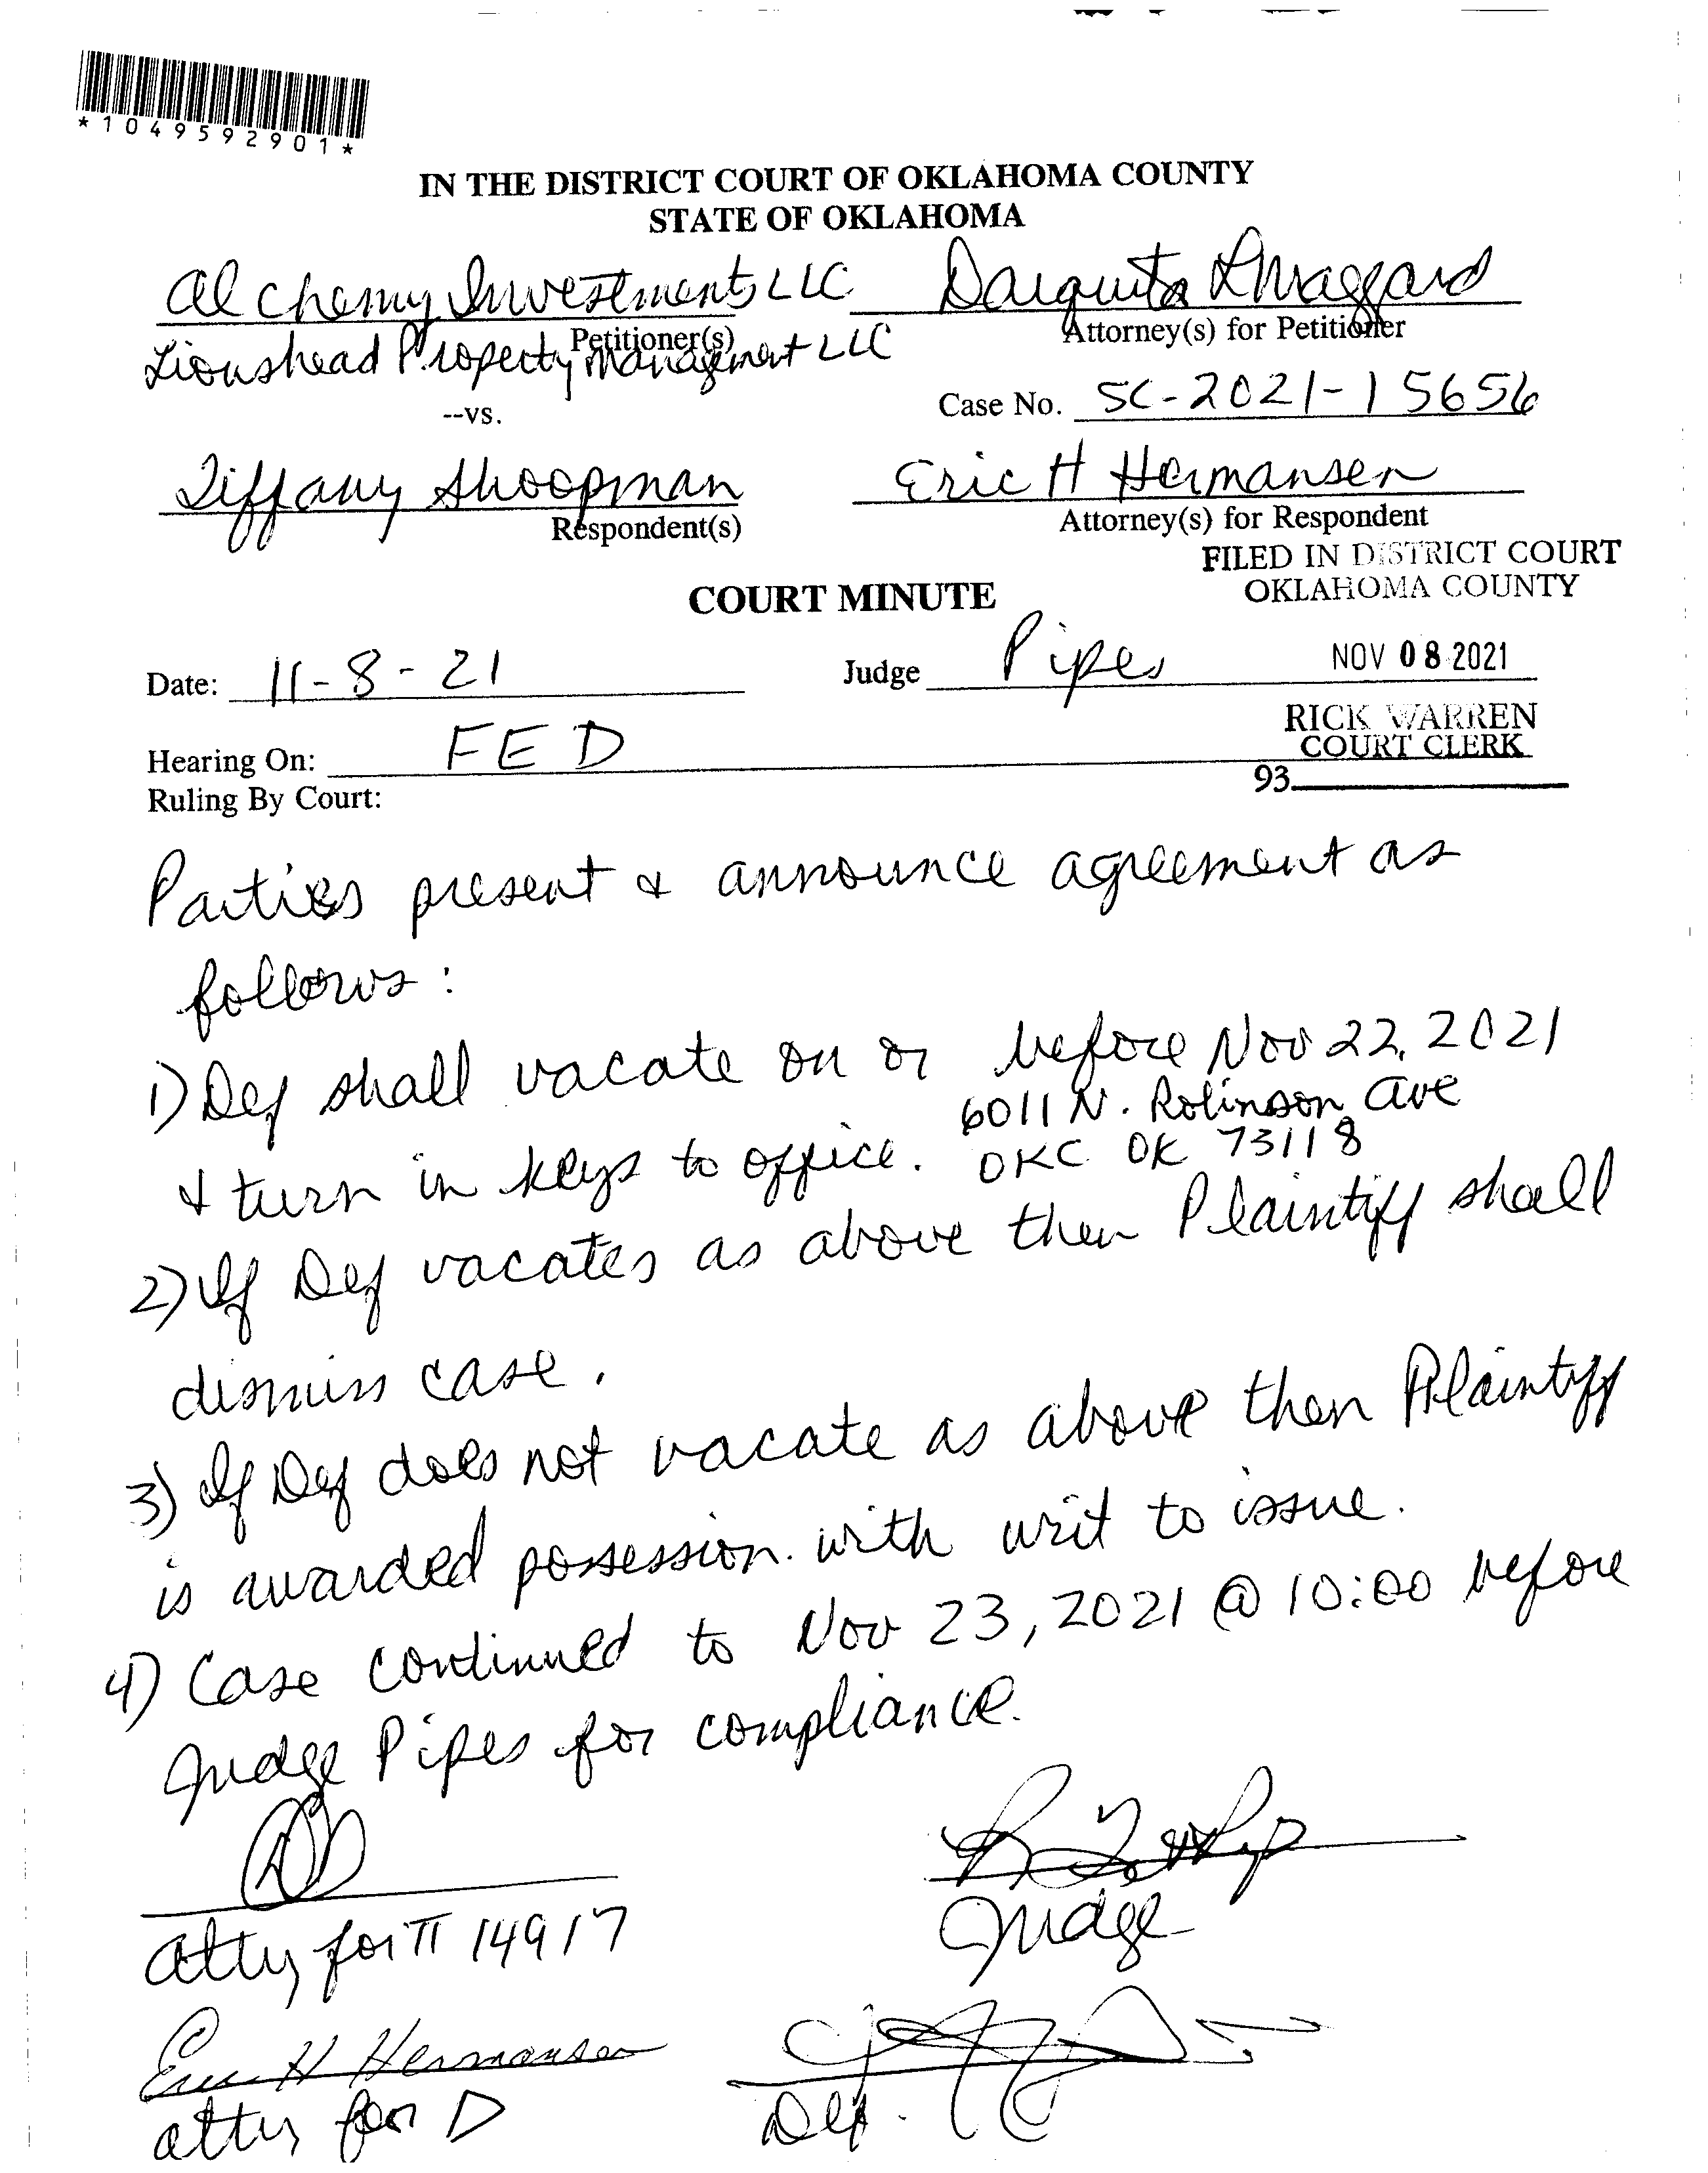 *1049592901*
IN THE DISTRICT COURT OF OKLAHOMA COUNTY
STATE OF OKLAHOMA
Alchemy Investments LLC
Petitioner(s)
Lionshead Property Management LLC
Darquita L Maggard
Attorney(s) for Petitioner
--vs.
Case No. SC-2021-15656
Tiffany Shoopman
Respondent(s)
Eric H Hermansen
Attorney(s) for Respondent
FILED IN DISTRICT COURT
OKLAHOMA COUNTY
COURT MINUTE
Date: 11-8-21
Judge Pipes
NOV 08 2021
RICK WARREN
COURT CLERK
Hearing On: FED
93
Ruling By Court:
Parties present & announce agreement as
follows:
1) Def shall vacate on or before Nov 22, 2021
6011 N. Robinson Ave
& turn in keys to office. OKC OK 73118
2) If Def vacates as above then Plaintiff shall
dismiss case.
3) If Def does not vacate as above then Plaintiff
is awarded possession with writ to issue.
4) Case continued to Nov 23, 2021 @ 10:00 before
Judge Pipes for compliance.
atty for π 14917
Judge
Eric H Hermansen
atty for D
Def.